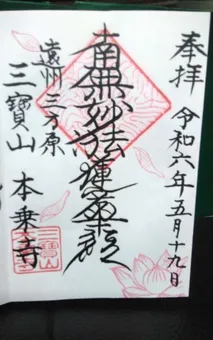 奉拝
令和六年五月十九日
南無妙法蓮華経
遠州三方原
三寶山
本乗寺